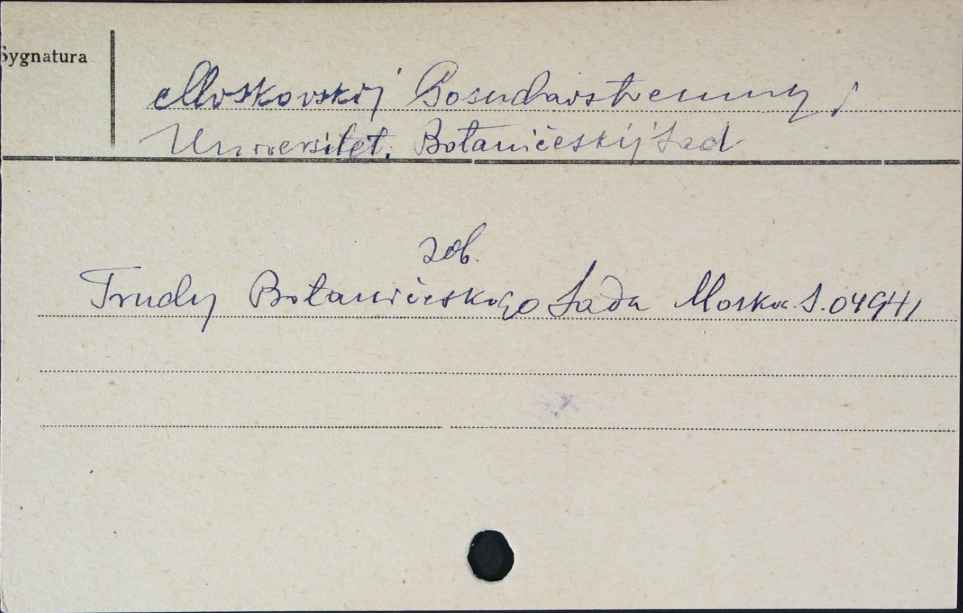 Sygnatura
Moskovskij Gosudarstvennyj
Universitet. Botaničeskij Sad
zob.
Trudy Botaničeskogo Sada Moskva S.04941